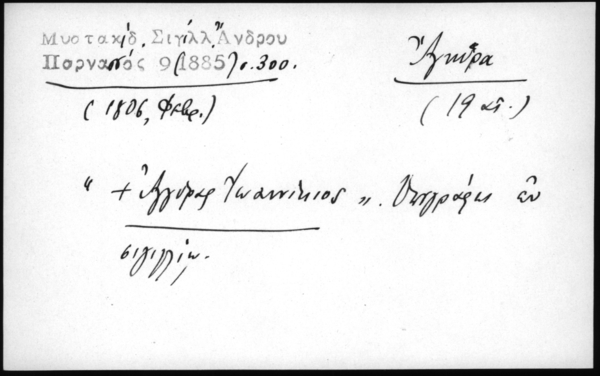 Μυστακίδ. Σιγίλλ. Ἄνδρου
Παρνασσός 9 (1885) σ. 300.
(1806, Φεβρ.)
Ἄγκυρα
(19 αἰ.)
" + Ἀγκύρας Ἰωαννίκιος ". Ὑπογράφει ἐν
σιγιλλίῳ.